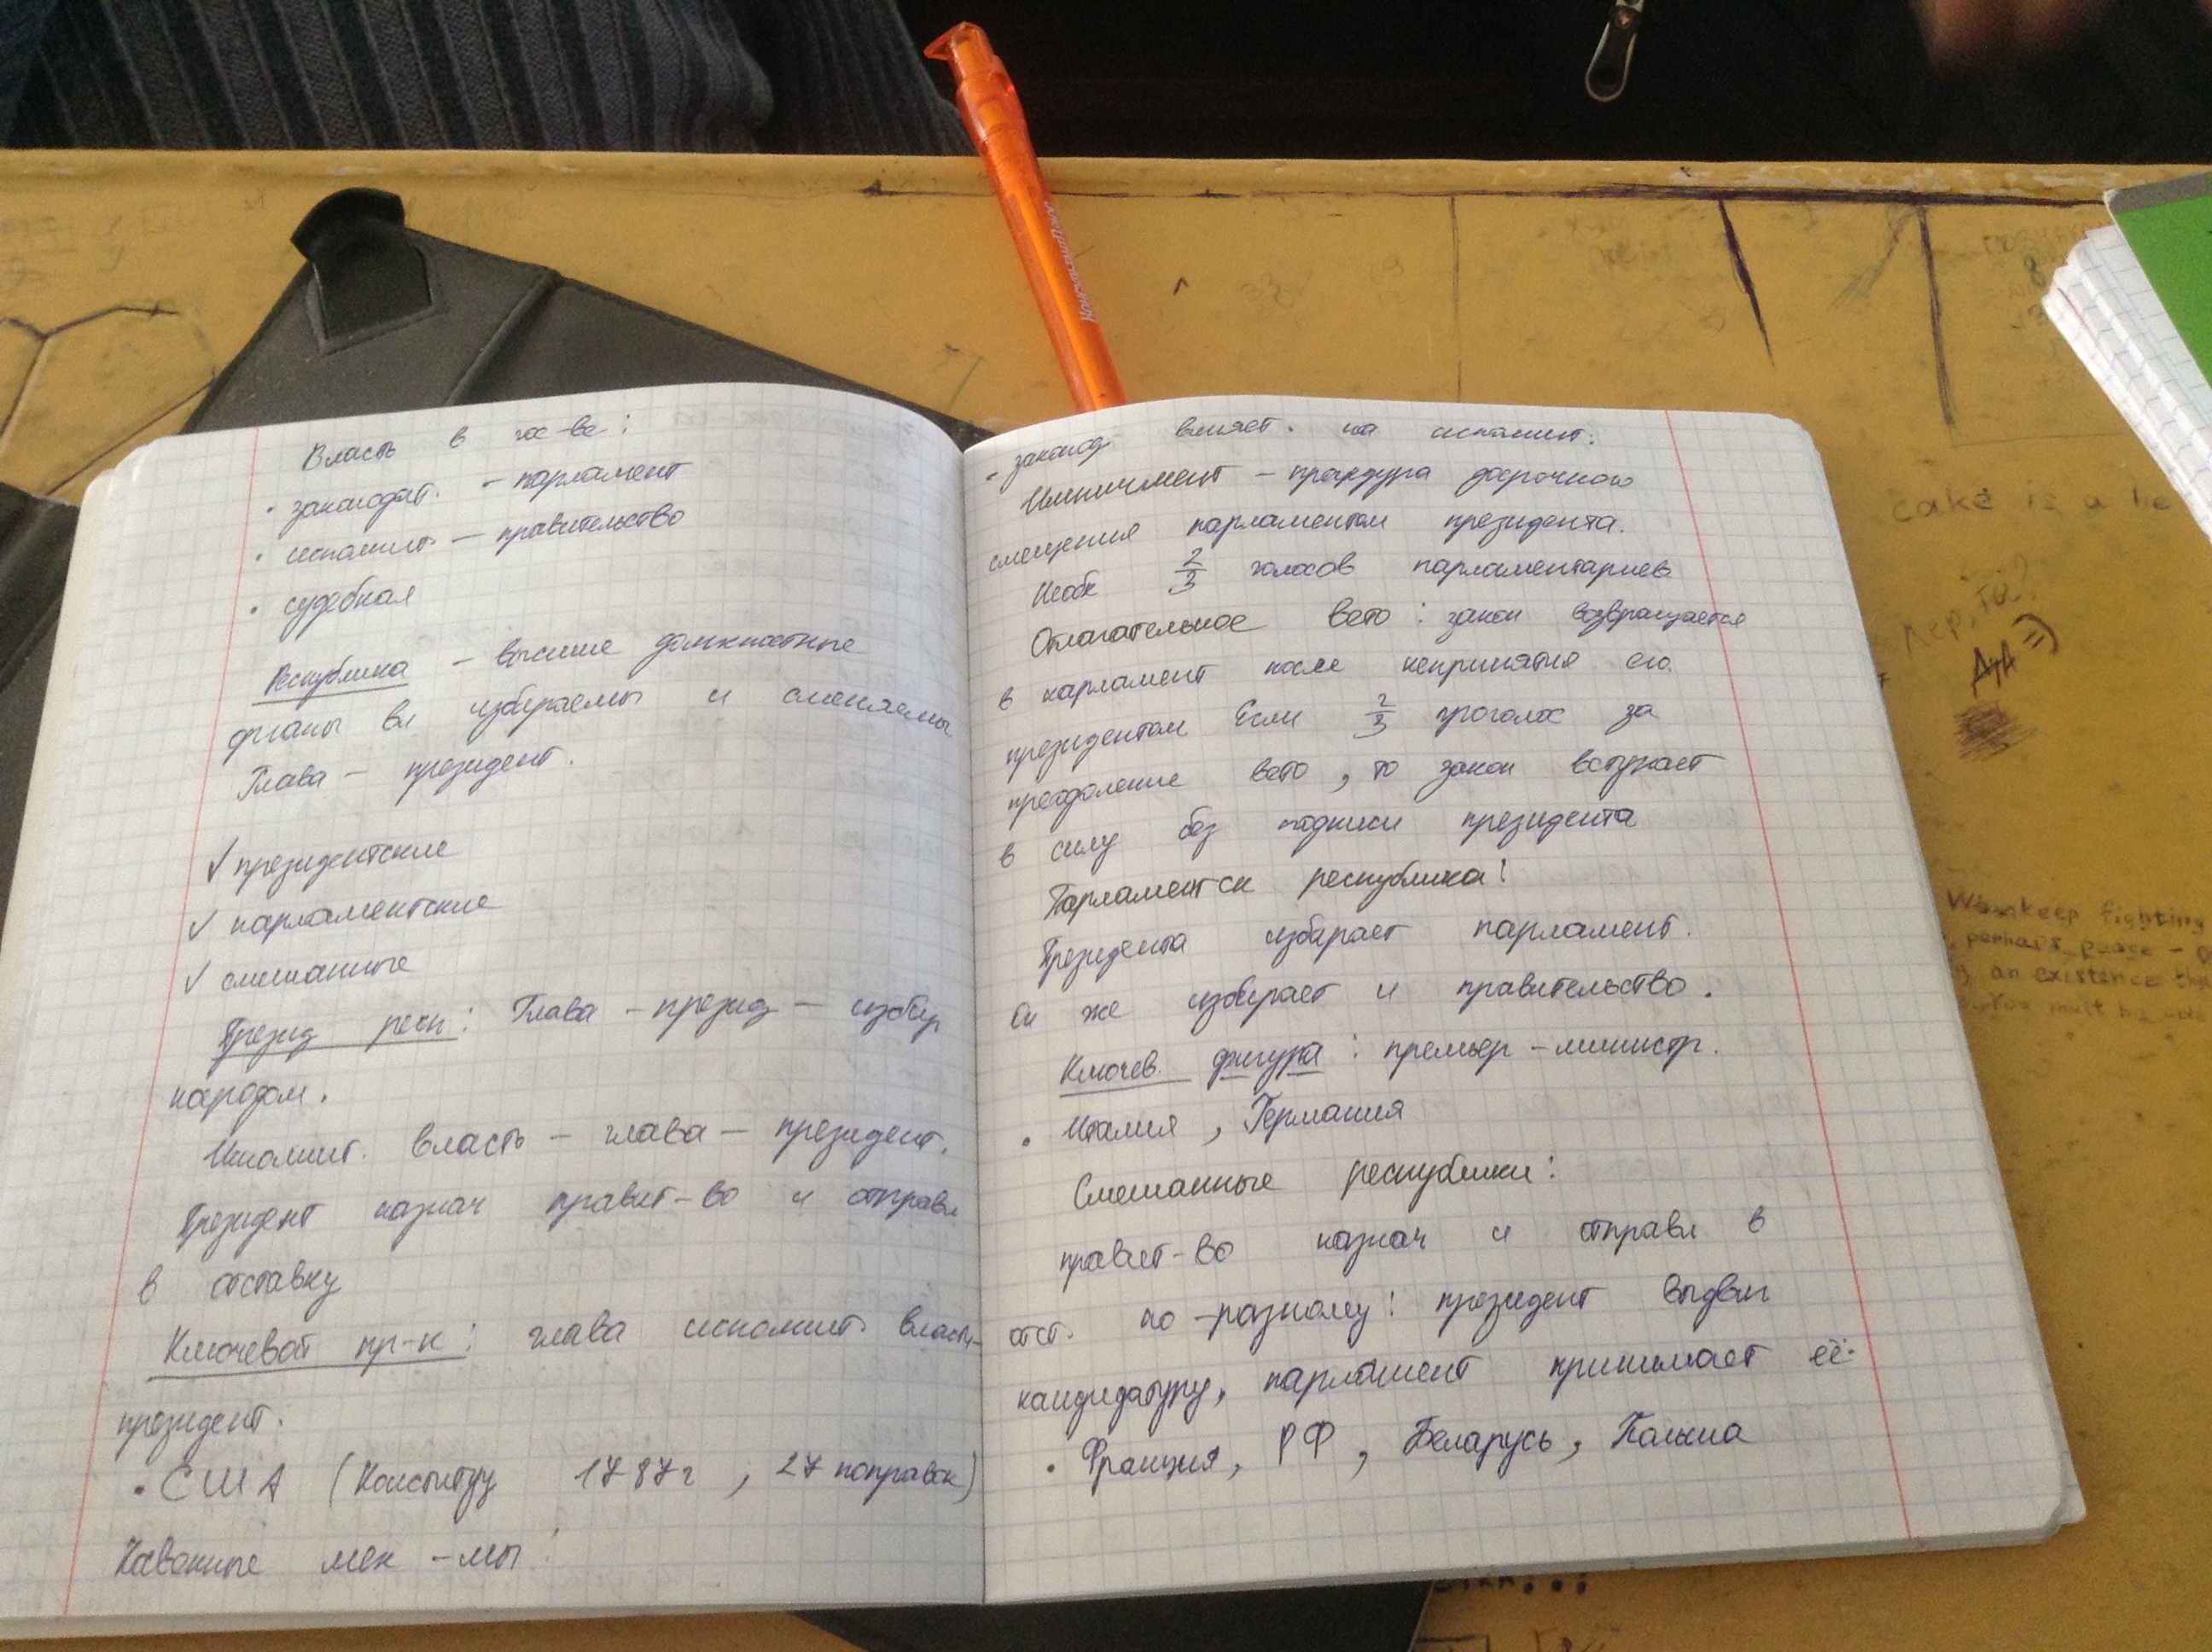 Власть в гос-ве:
· законодат. - парламент
· исполнит. - правительство
· судебная
Республика - высшие должностные
органы вл избираемы и сменяемы
Глава - президент.
✓ президентские
✓ парламентские
✓ смешанные
Презид респ: Глава - презид - избир
народом.
Исполнит. власть - глава - президент.
Президент назнач правит-во и отправл
в отставку
Ключевой пр-к: глава исполнит. власти-
президент.
· США (Конституц 1787г, 27 поправок)
мех-мы:
- законод влияет. на исполнит.
Импичмент - процедура досрочного
смещения парламентом президента.
Необх 2/3 голосов парламентариев
Отлагательное вето: закон возвращается
в парламент после непринятия его.
президентом Если 2/3 проголос за
преодоление вето, то закон вступает
в силу без подписи президента
Парламентск республика:
Президента избирает парламент.
Он же избирает и правительство.
Ключев. фигура: премьер-министр.
· Италия, Германия
Смешанные республики:
правит-во назнач и отправл в
отст. по-разному: президент выдвиг
кандидатуру, парламент принимает её.
· Франция, РФ, Беларусь, Польша
КонсультантПлюс
cake is a lie
ДА =)
keep fighting
perhaps peace -
an existence
You must be